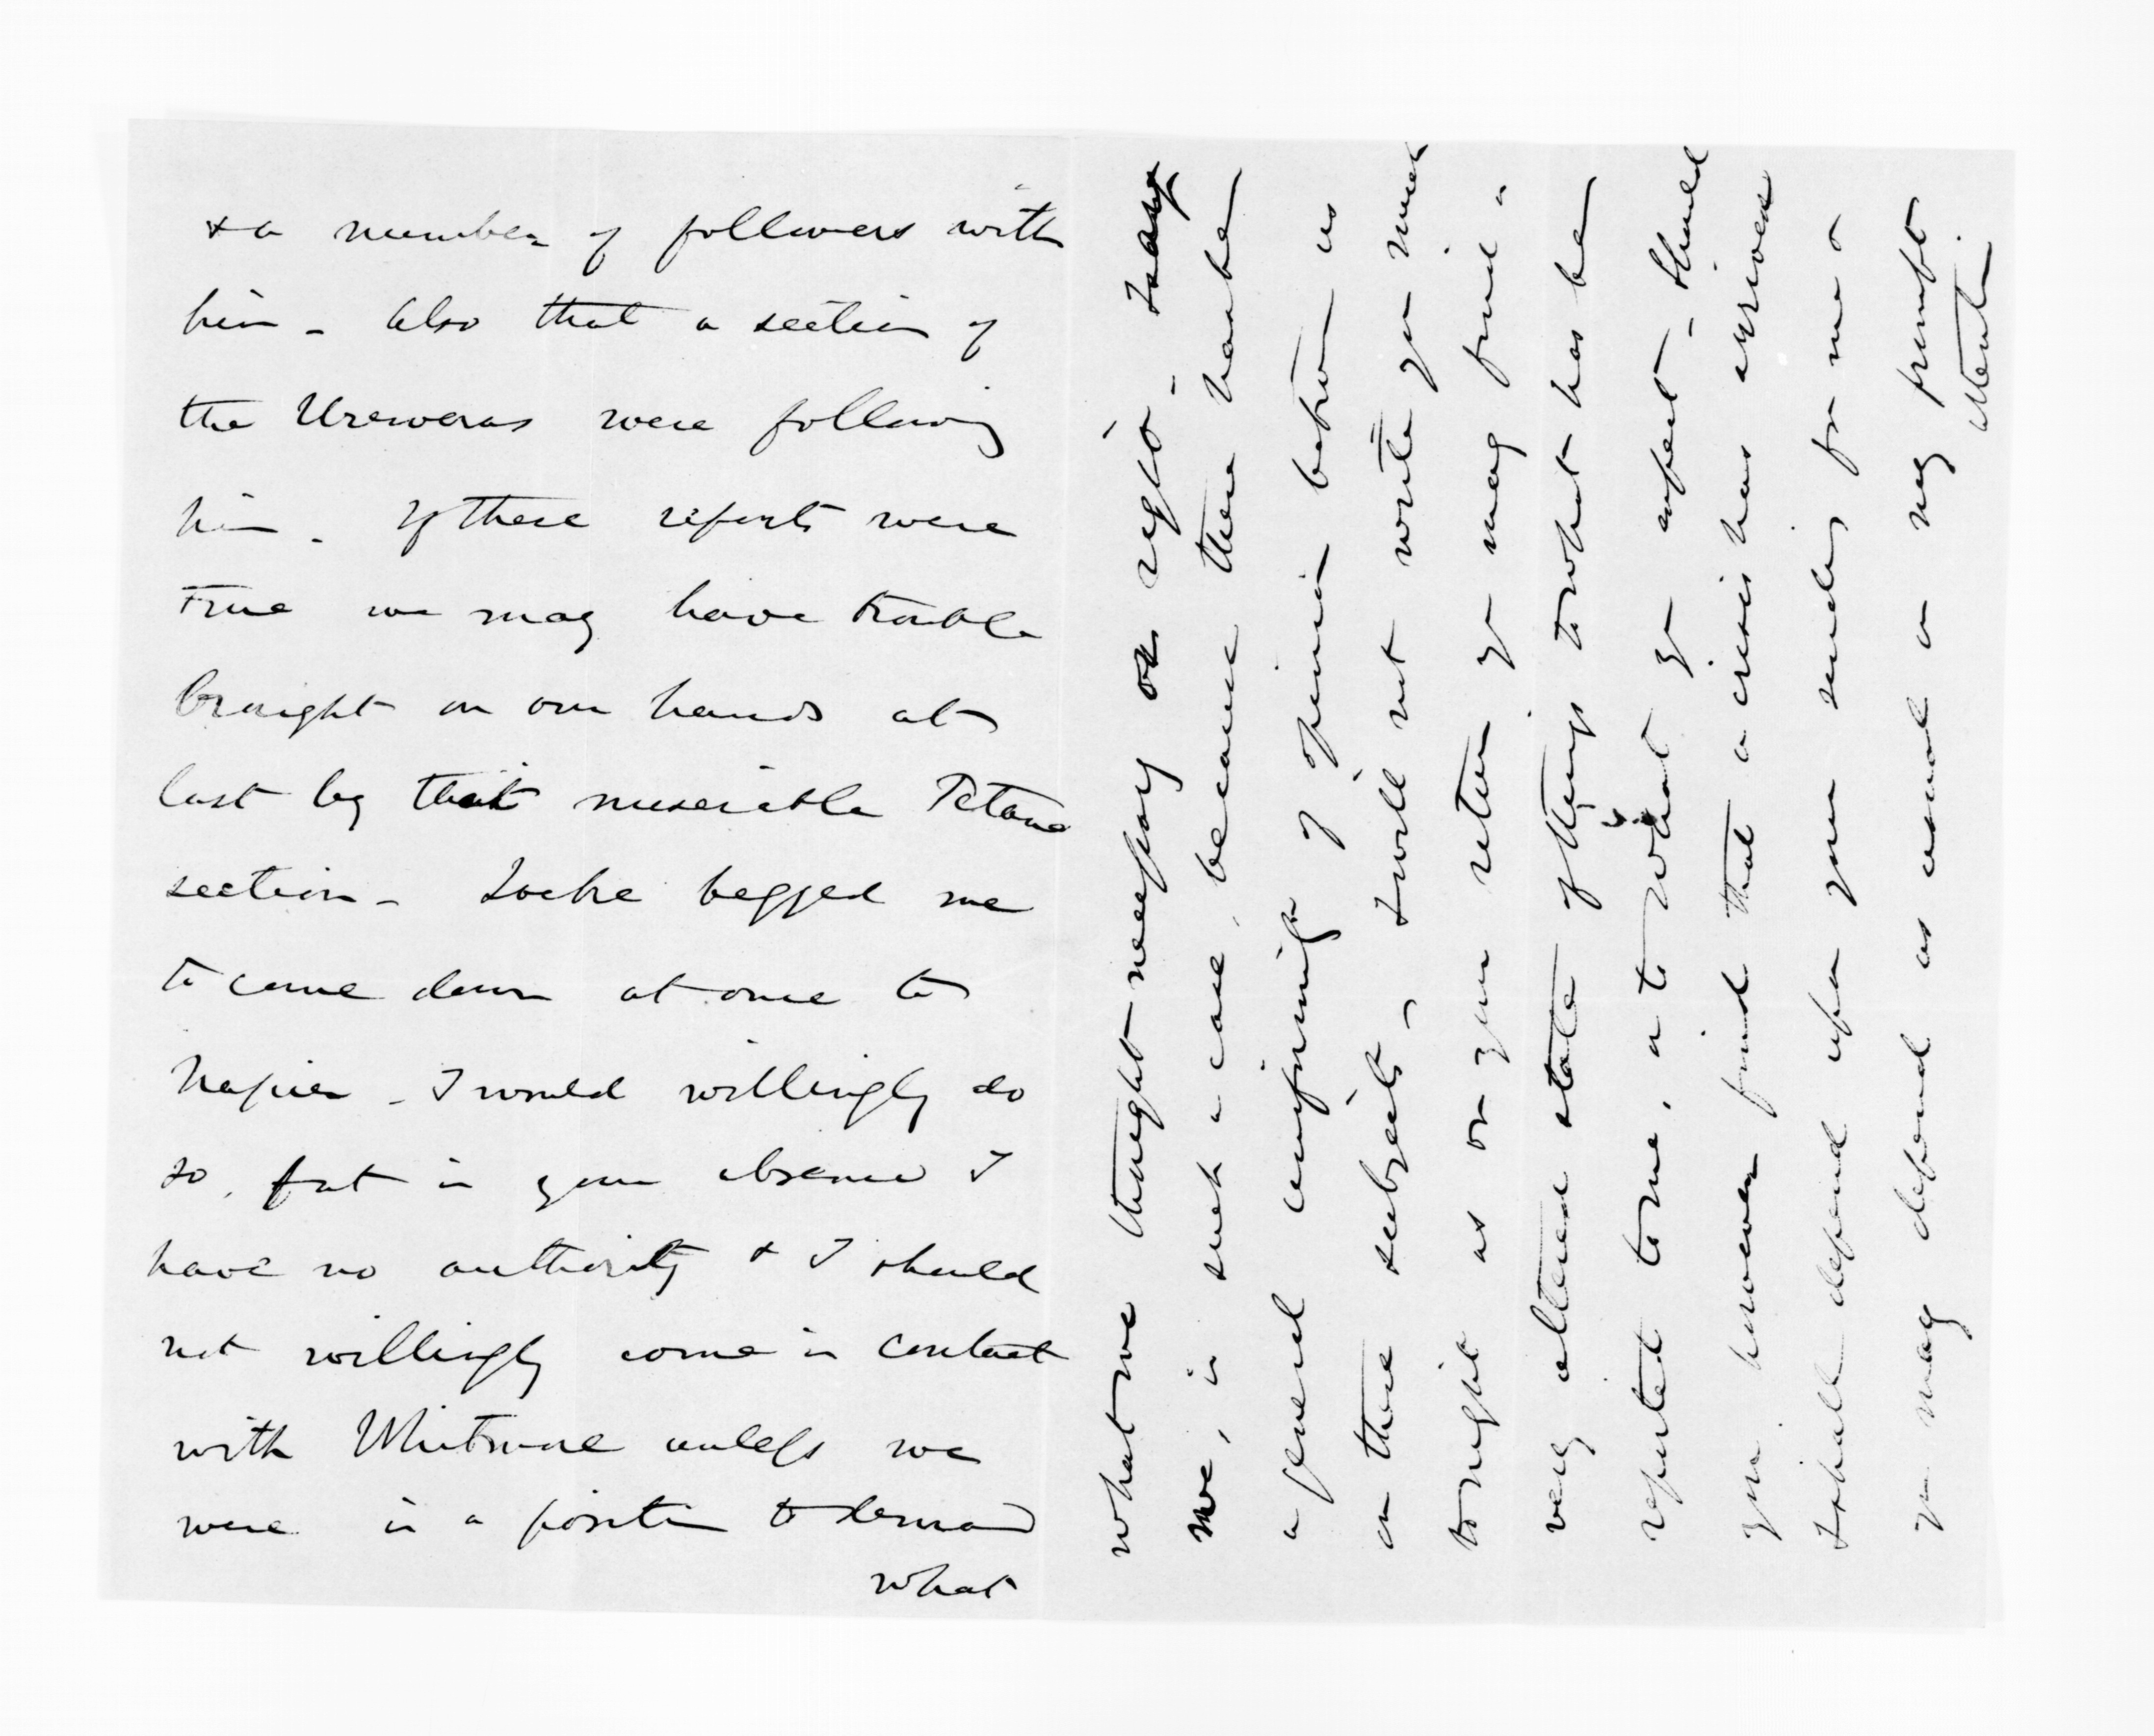 & a number of followers with
him - Also that a section of
the Ureweras were following
him - If these reports were
true we may have trouble
brought on our hands at
last by that miserable Petane
section - Locke begged me
to come down at once to
Napier - I would willingly do
so, but in your absence I
have no authority & I should
not willingly come in contact
with Whitmore unless we
were in a position to demand
what
what we thought necessary or right - I say
we, in such a case, because there has been
a general conformity of opinion between us
on these subjects - I will not write you much
tonight as on your return you may find a
very altered state of things to what has been
reported to me, or to what you expect - Should
you however find that a crisis has arrived
I shall depend upon your sending for me &
you may depend as usual on my prompt
attention